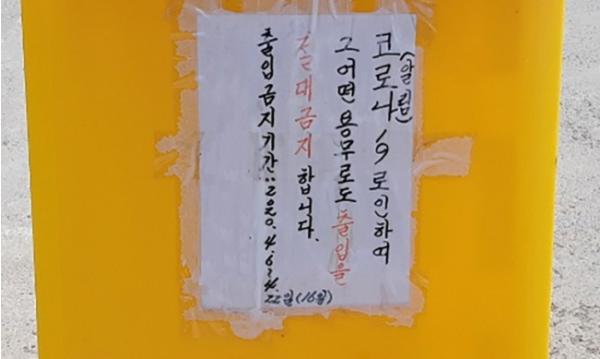 (알림)
코로나 19로인하여
그어떤 용무로도 출입을
절대금지 합니다.
출입금지기간: 2020. 4. 6~4.
22일(16일)